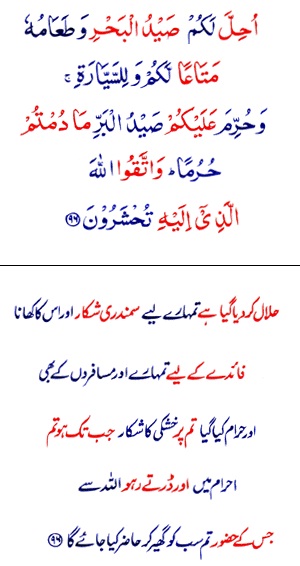 اُحِلَّ لَكُمْ صَيْدُ الْبَحْرِ وَطَعَامُهٗ
مَتَاعًا لَّكُمْ وَلِلسَّيَّارَةِ ۚ
وَحُرِّمَ عَلَيْكُمْ صَيْدُ الْبَرِّ مَا دُمْتُمْ
حُرُمًا ؕ وَاتَّقُوا اللّٰهَ
الَّذِىْۤ اِلَيْهِ تُحْشَرُوْنَ ﴿۹۶﴾
حلال کر دیا گیا ہے تمہارے لیے سمندری شکار اور اس کا کھانا
فائدے کے لیے تمہارے اور مسافروں کے بھی
اور حرام کیا گیا تم پر خشکی کا شکار جب تک ہو تم
احرام میں اور ڈرتے رہو اللہ سے
جس کے حضور تم سب کو گھیر کر حاضر کیا جائے گا ﴿۹۶﴾